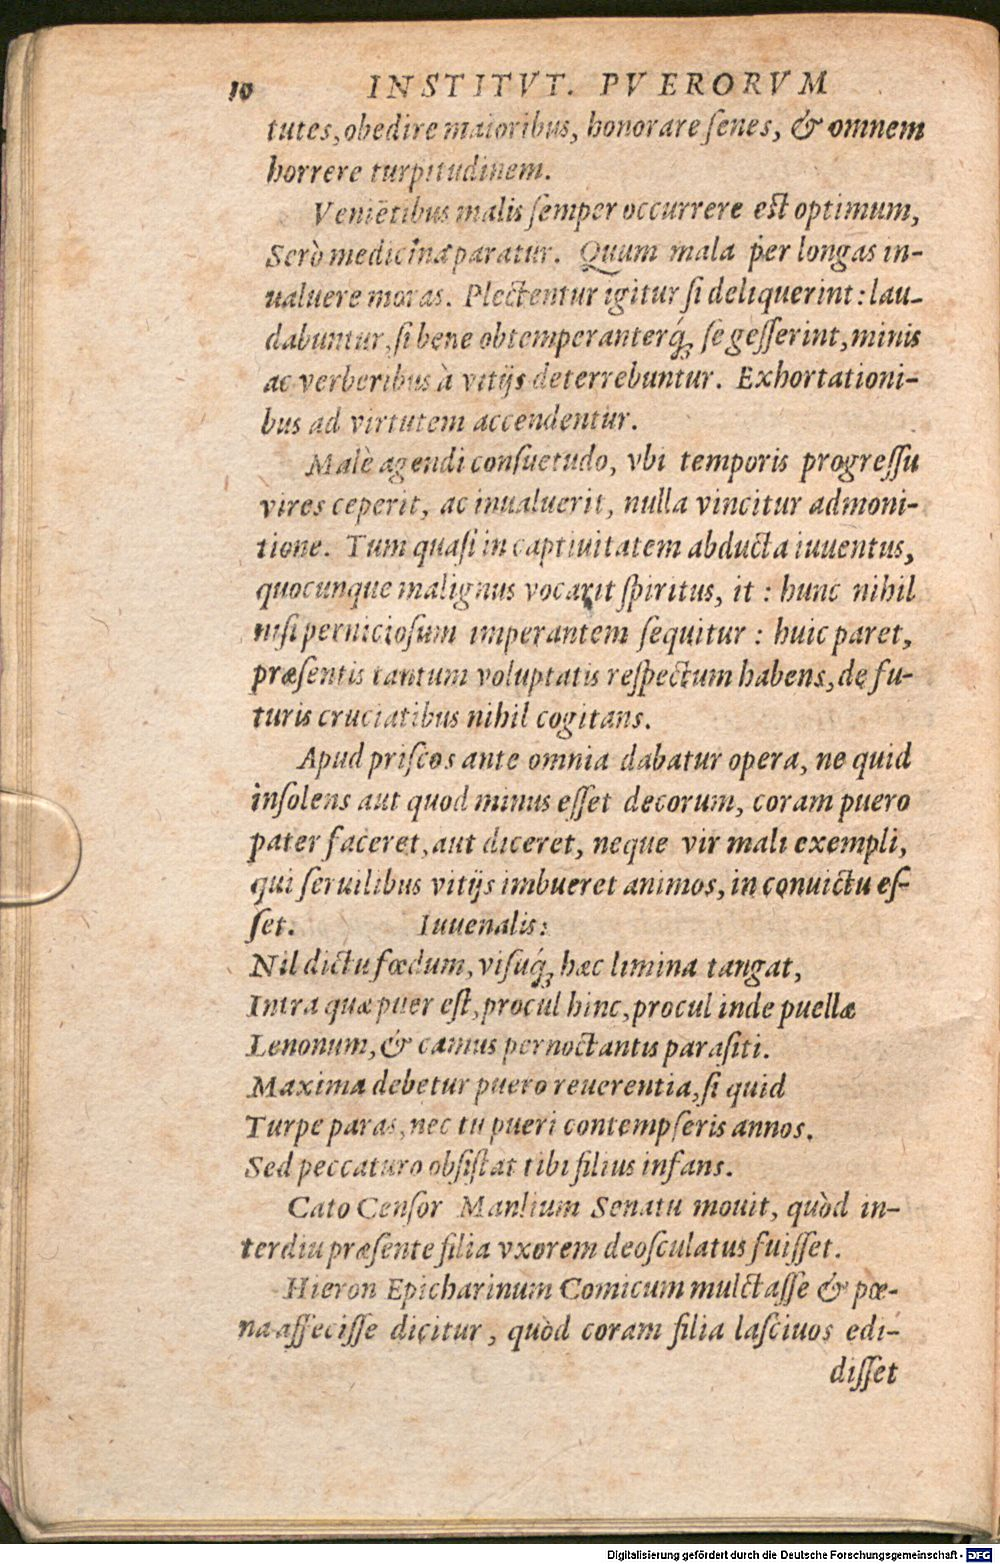 10 INSTITVT. PVERORVM
tutes, obedire maioribus, honorare ſenes, & omnem
horrere turpitudinem.
Veniētibus malis ſemper occurrere eſt optimum,
Serò medicina paratur. Quum mala per longas in-
ualuere moras. Plectentur igitur ſi deliquerint: lau-
dabuntur, ſi bene obtemperanterq́; ſe geſſerint, minis
ac verberibus à vitijs deterrebuntur. Exhortationi-
bus ad virtutem accendentur.
Malè agendi conſuetudo, vbi temporis progreſſu
vires ceperit, ac inualuerit, nulla vincitur admoni-
tione. Tum quaſi in captiuitatem abducta iuuentus,
quocunque malignus vocarit ſpiritus, it: hunc nihil
niſi perniciosum imperantem ſequitur: huic paret,
præſentis tantum voluptatis reſpectum habens, de fu-
turis cruciatibus nihil cogitans.
Apud priſcos ante omnia dabatur opera, ne quid
inſolens aut quod minus eſſet decorum, coram puero
pater faceret, aut diceret, neque vir mali exempli,
qui ſeruilibus vitijs imbueret animos, in conuictu eſ-
ſet. Iuuenalis:
Nil dictu fœdum, viſuq́; hæc limina tangat,
Intra quæ puer eſt, procul hinc, procul inde puellæ
Lenonum, & camus pernoctantis paraſiti.
Maxima debetur puero reuerentia, ſi quid
Turpe paras, nec tu pueri contempſeris annos.
Sed peccaturo obſiſtat tibi filius infans.
Cato Cenſor Manlium Senatu mouit, quòd in-
terdiu præſente filia vxorem deoſculatus fuiſſet.
Hieron Epicharinum Comicum mulctaſſe & pœ-
na affeciſſe dicitur, quòd coram filia laſciuos edi-
diſſet
Digitalisierung gefördert durch die Deutsche Forschungsgemeinschaft - DFG